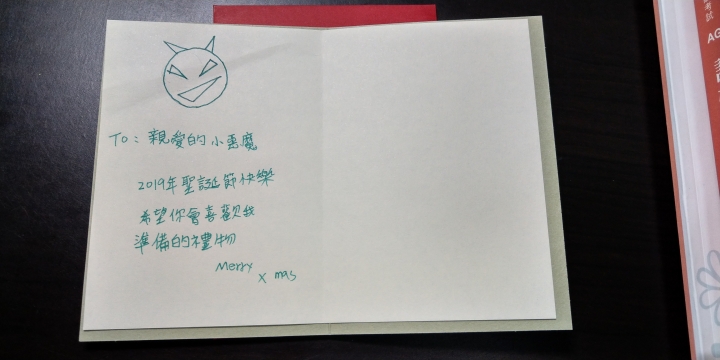 To: 親愛的小惡魔
2019年聖誕節快樂
希望你會喜歡我
準備的禮物
Merry
X mas
考試
AG